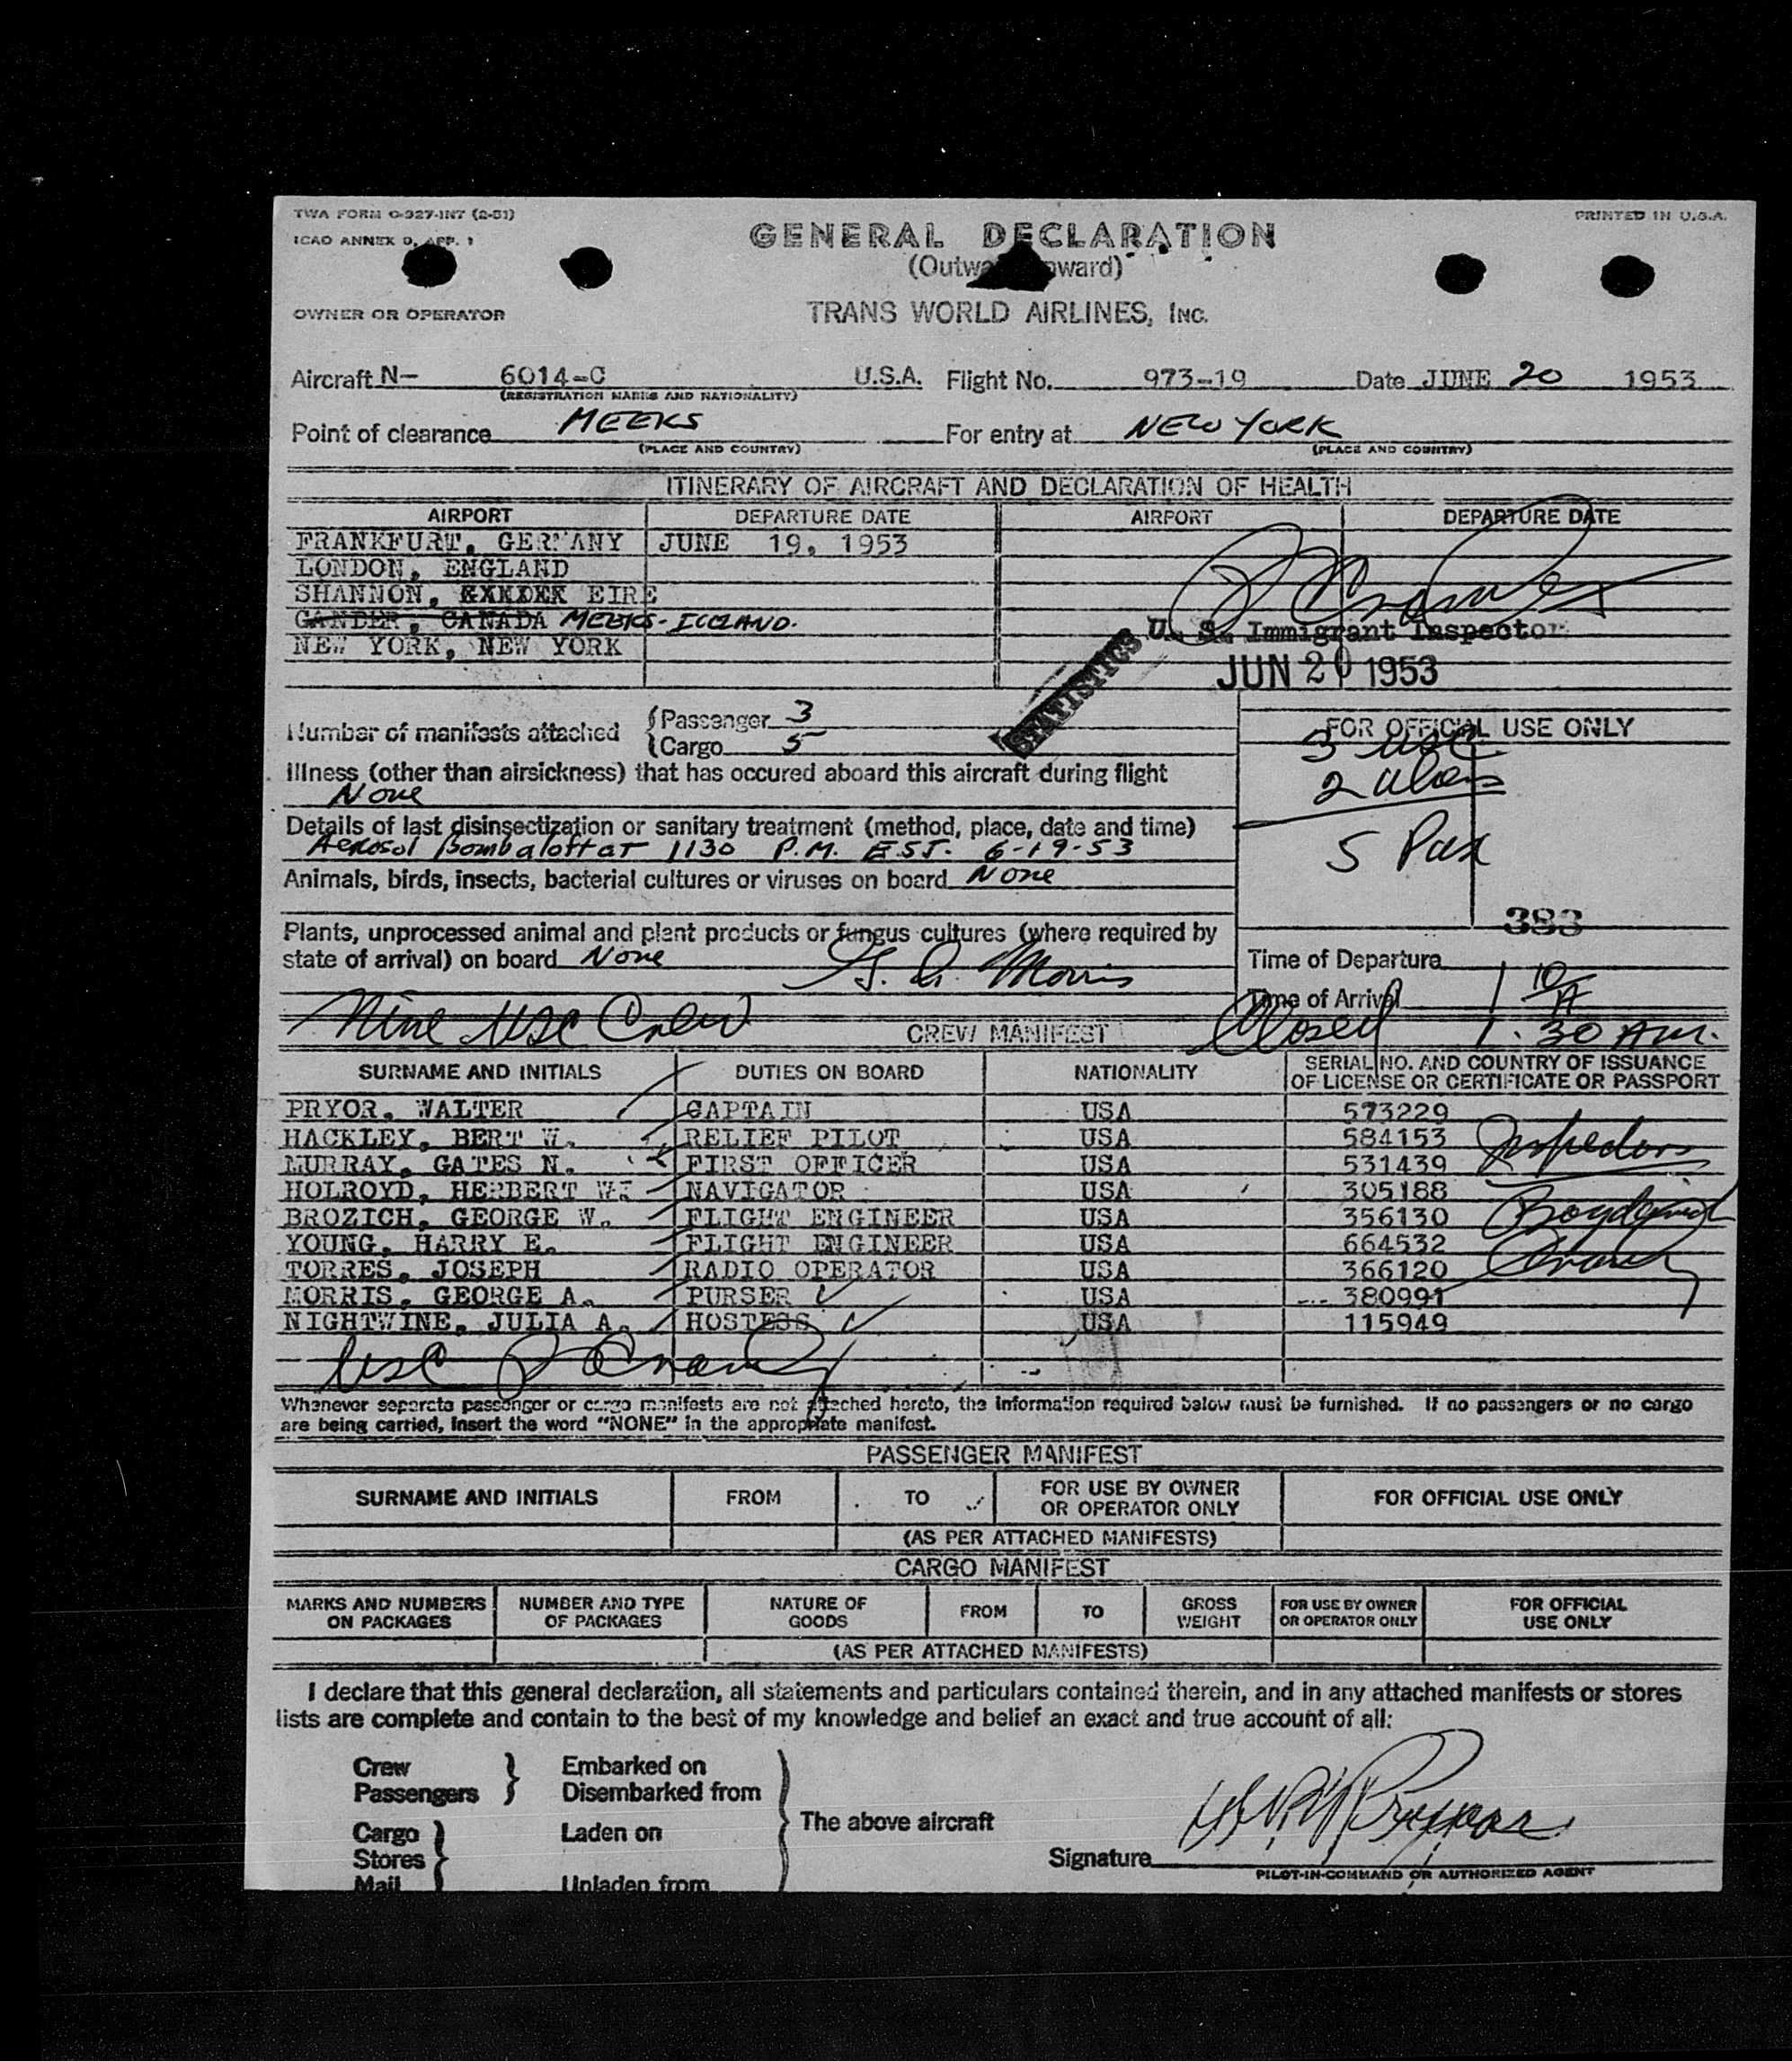 TWA FORM O-927-INT (2-51)
PRINTED IN U.S.A.
ICAO ANNEX 9, APP. 1
GENERAL DECLARATION
TRANS WORLD AIRLINES, INC.
OWNER OR OPERATOR
Aircraft N- 6014-C U.S.A. Flight No. 973-19 Date JUNE 20 1953
(REGISTRATION MARKS AND NATIONALITY)
Point of clearance MEEKS For entry at NEW YORK
(PLACE AND COUNTRY) (PLACE AND COUNTRY)
ITINERARY OF AIRCRAFT AND DECLARATION OF HEALTH
AIRPORT DEPARTURE DATE AIRPORT DEPARTURE DATE
FRANKFURT, GERMANY JUNE 19, 1953
LONDON, ENGLAND
SHANNON, EIRE
GANDER, CANADA MEEKS- ICELAND.
NEW YORK, NEW YORK
U. S. Immigrant Inspector
JUN 20 1953
STATISTICS
Number of manifests attached
Passenger 3
Cargo 5
FOR OFFICIAL USE ONLY
3 USC
2 Aliens
5 Pax
383
Illness (other than airsickness) that has occured aboard this aircraft during flight
None
Details of last disinsectization or sanitary treatment (method, place, date and time)
Aerosol Bomb aloft at 1130 P.M. EST. 6-19-53
Animals, birds, insects, bacterial cultures or viruses on board None
Plants, unprocessed animal and plant products or fungus cultures (where required by
state of arrival) on board None G. A. Morris
Time of Departure
Time of Arrival 1 10 A
Nine USC Crew
CREW MANIFEST
Closed 1:30 AM.
SURNAME AND INITIALS DUTIES ON BOARD NATIONALITY SERIAL NO. AND COUNTRY OF ISSUANCE
OF LICENSE OR CERTIFICATE OR PASSPORT
PRYOR, WALTER CAPTAIN USA 573229
HACKLEY, BERT W. RELIEF PILOT USA 584153
Inspectors
MURRAY, GATES N. FIRST OFFICER USA 531439
HOLROYD, HERBERT W. NAVIGATOR USA 305188
BROZICH, GEORGE W. FLIGHT ENGINEER USA 356130
YOUNG, HARRY E. FLIGHT ENGINEER USA 664532
TORRES, JOSEPH RADIO OPERATOR USA 366120
MORRIS, GEORGE A. PURSER USA 380991
NIGHTWINE, JULIA A. HOSTESS USA 115949
USC
Whenever separate passenger or cargo manifests are not attached hereto, the information required below must be furnished. If no passengers or no cargo
are being carried, insert the word "NONE" in the appropriate manifest.
PASSENGER MANIFEST
SURNAME AND INITIALS FROM TO FOR USE BY OWNER
OR OPERATOR ONLY FOR OFFICIAL USE ONLY
(AS PER ATTACHED MANIFESTS)
CARGO MANIFEST
MARKS AND NUMBERS
ON PACKAGES NUMBER AND TYPE
OF PACKAGES NATURE OF
GOODS FROM TO GROSS
WEIGHT FOR USE BY OWNER
OR OPERATOR ONLY FOR OFFICIAL
USE ONLY
(AS PER ATTACHED MANIFESTS)
I declare that this general declaration, all statements and particulars contained therein, and in any attached manifests or stores
lists are complete and contain to the best of my knowledge and belief an exact and true account of all:
Crew Embarked on
Passengers Disembarked from
The above aircraft
Cargo Laden on
Stores
Mail Unladen from
Signature
PILOT-IN-COMMAND OR AUTHORIZED AGENT